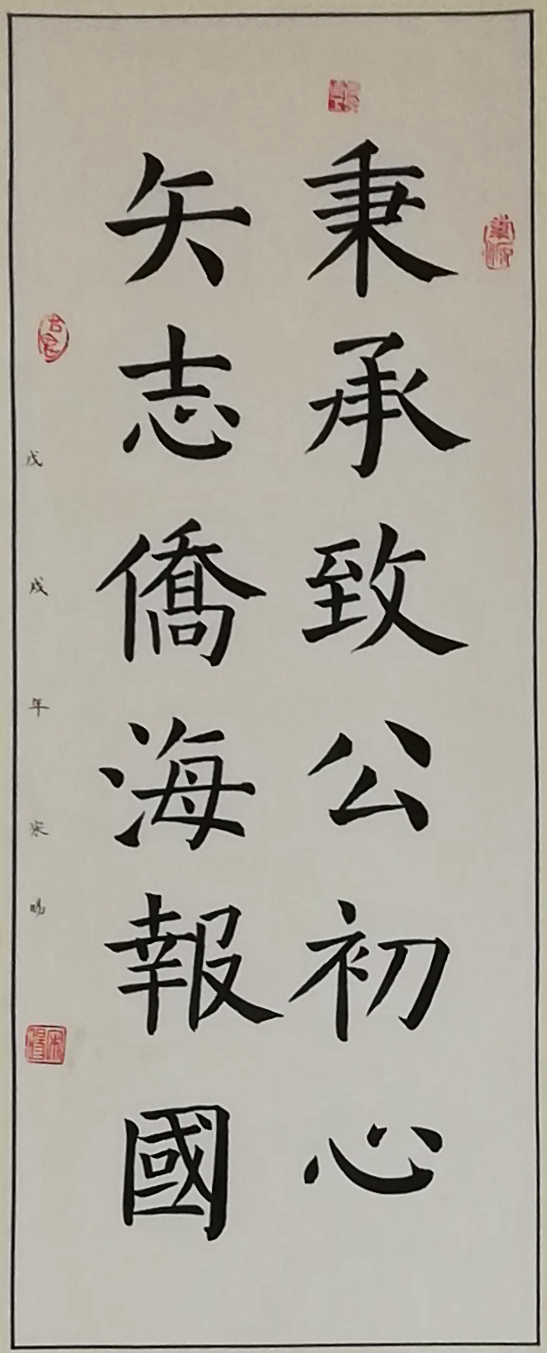 秉承致公初心
矢志僑海報國
戊戌年